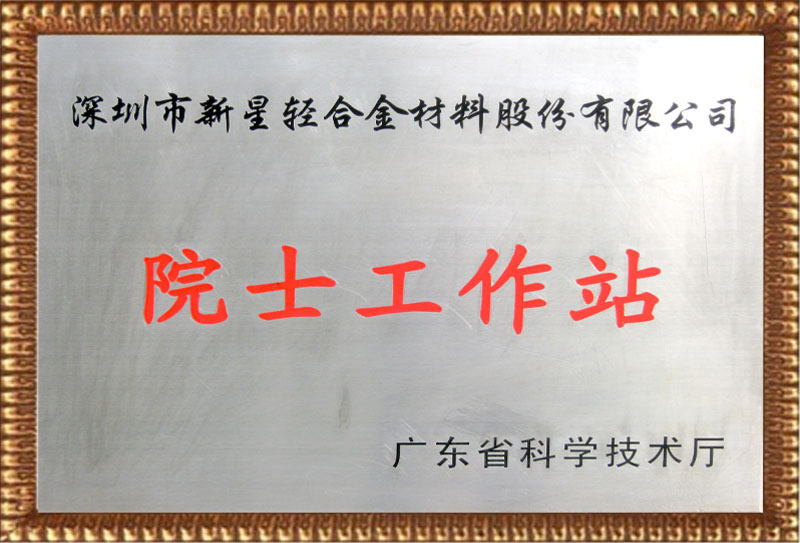 深圳市新星轻合金材料股份有限公司
院士工作站
广东省科学技术厅